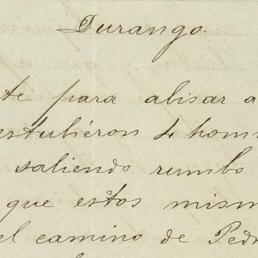 Durango.
te para alisar a
estubiéron 4 hom
saliendo rumbo
que estos mism
el camino de Ped